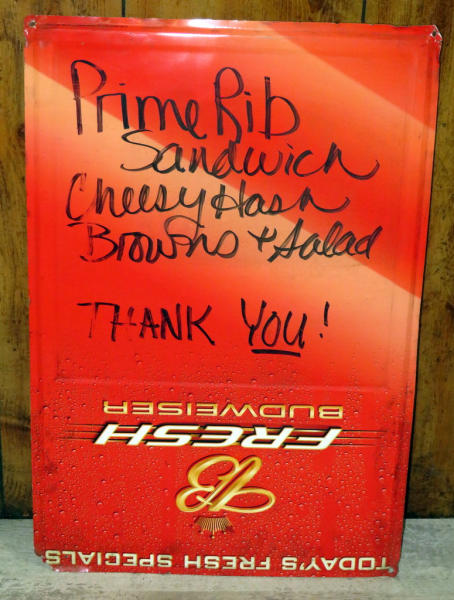 Prime Rib
Sandwich
Cheesy Hash
Browns + Salad
THANK YOU!
BUDWEISER
FRESH
B
TODAY'S FRESH SPECIALS